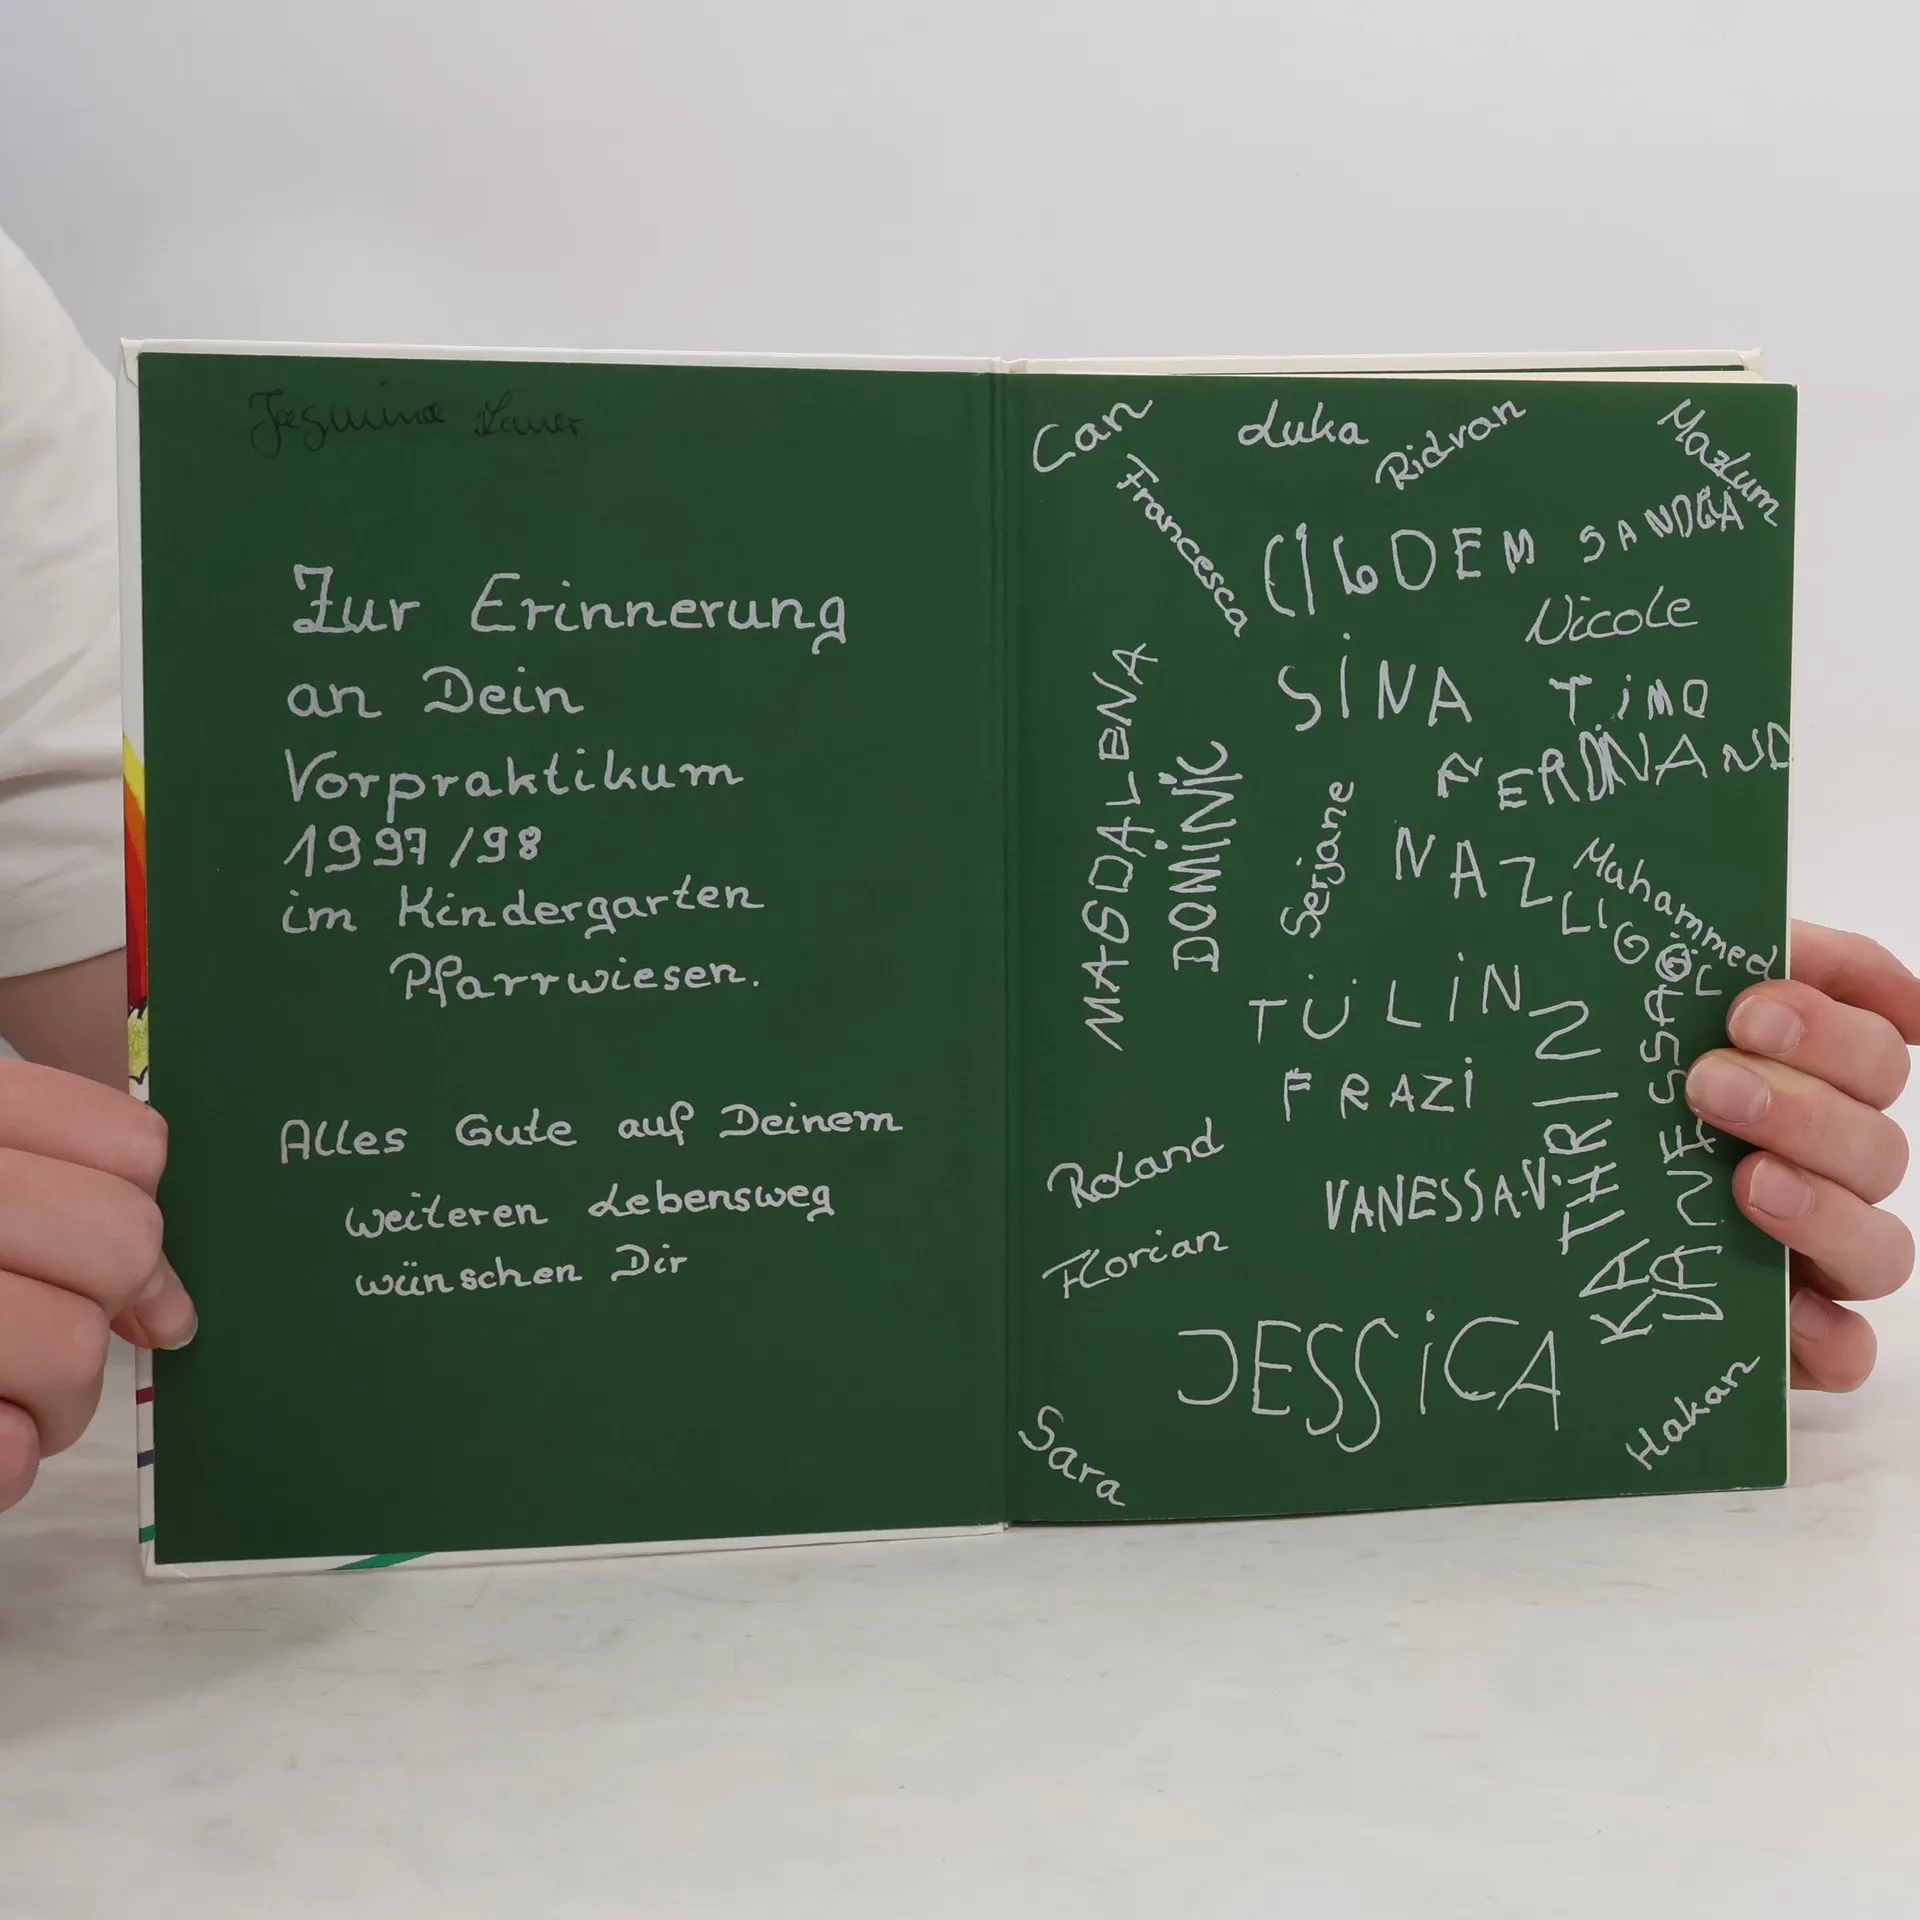 Jasmina Lauer
Zur Erinnerung
an Dein
Vorpraktikum
1997/98
im Kindergarten
Pfarrwiesen.
Alles Gute auf Deinem
weiteren Lebensweg
wünschen Dir
Can
Luka
Ridvan
Mazlum
Francesca
CIGDEM
SANDRA
Nicole
SINA
TiMO
MAGDALENA
DOMiNiC
FERDINAND
Serjane
NAZLIGÖL
Muhammed
TÜLiN
FRAZi
KATHRIN
VANESSA
Roland
VANESSA.V.
Florian
JESSiCA
Sara
Hakan